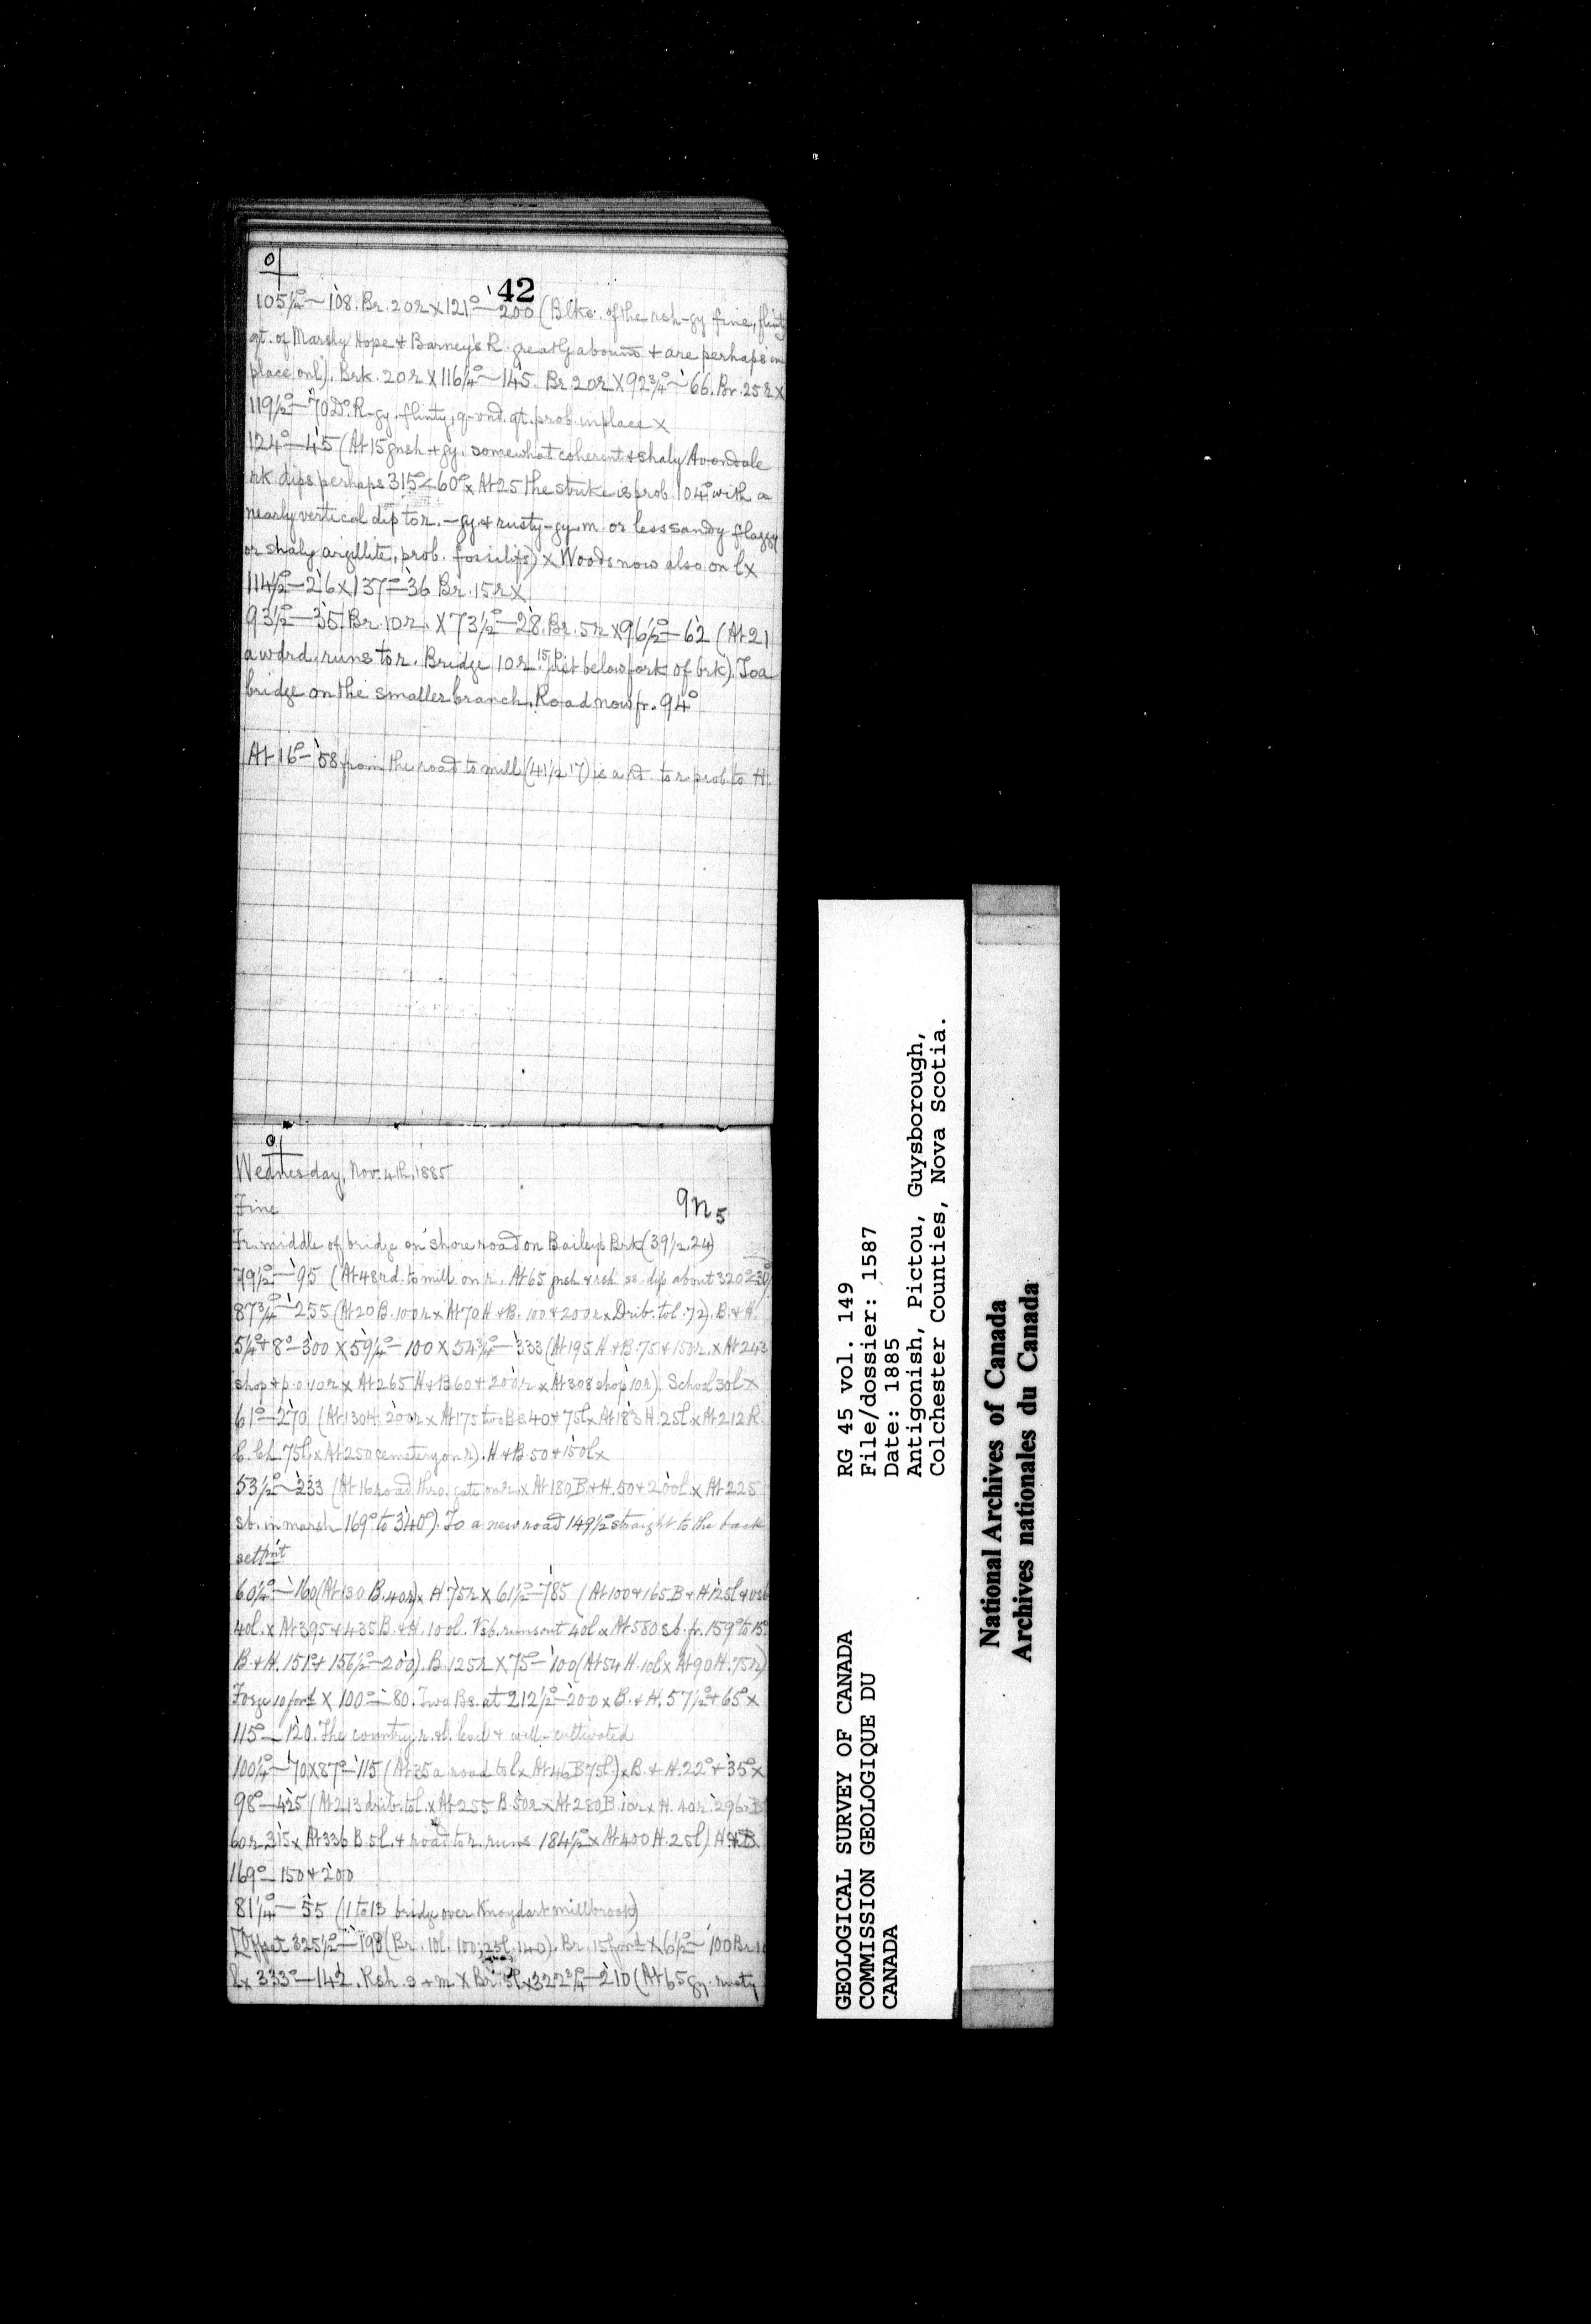 0
42
105½° — 108. Br. 20r X 121° — 200 (Blks. of the rsh-gy fine, flinty
qt. of Marshy Hope & Barneys R. greatly abound & are perhaps in
place onl). Brk. 20r X 116¼° — 145. Br 20r X 92¾° — 66. Br. 25r X
119½° — 70 Do. R-gy. flinty, q-vnd. qt. prob. in place X
124° — 45 (At 15 gnsh + gy. somewhat coherent & shaly Avondale
rk dips perhaps 315° < 60° x At 25 the strike is prob. 104° with a
nearly vertical dip to r. — gy. & rusty-gy. m. or less sandy flaggy
or shaly argillite, prob. fossilifs) x Woods now also on l x
114½° — 26 x 137° — 36 Br. 15r X
93½° — 35. Br. 10r. X 73½° — 28. Br. 5r X 96½° — 62 (At 21
a wdrd. runs to r. Bridge 10r. 15 p. just below fork of brk). To a
bridge on the smaller branch. Road now fr. 94°
At 16° — 58 from the road to mill (41½.17) is a rd. to r. prob. to H.
0
Wednesday, Nov. 4th, 1885
Fine
9n5
Fr. middle of bridge on shore road on Baileys Brk (39½.24)
79½° — 95 (At 48 rd. to mill on r. At 65 gnsh & rsh ss. dip about 320° < 30°)
87¾° — 255 (At 20 B. 100r x At 70 H & B. 100 & 200r x Drib. to l. 72). B. & H.
5¼° & 8° — 300 X 59¼° — 100 X 54¾° — 333 (At 195 H. & B. 75 & 150r. x At 243
shop & p.o. 10r x At 265 H & B 60 & 200r x At 308 shop 10r). School 30l x
61° — 270 (At 130 H. 200r x At 175 two Bs 40 & 75l x At 183 H. 25l x At 212 R.
C. Ch. 75l. x At 250 cemetery on r). H & B. 50 & 150l x
53½° — 233 (At 16 road thro. gate on r. x At 180 B & H. 50 & 200l. x At 225
sb. in marsh 169° to 340°). To a new road 149½° straight to the back
settmt
60¼° — 160 (At 130 B. 40r) x H 75r X 61½° — 785 (At 100 & 165 B & H 125l & vsb
40l. x At 395 & 435 B. & H. 100l. Vsb. runs out 40l x At 580 sb. fr. 159° to 15°
B & H. 151° & 156½° — 200). B. 125r X 75° — 100 (At 54 H. 10l x At 90 H. 75r)
Forge 10 ford X 100° — 80. Two Bs. at 212½° — 200 x B. & H. 57½° & 65° x
115° — 120. The country r. & l. level & well-cultivated
100¼° — 70 X 87° — 115 (At 35 a road to l x At 46 B 75l) x B. & H. 22° & 35° x
98° — 425 (At 213 drib. to l. x At 255 B. 50r x At 280 B. 10r x H. 40r 296 x B
60r 315 x At 336 B. 5l. & road to r. runs 184½° x At 400 H. 25l) H & B.
169° — 150 & 200
81¼° — 55 (1 to 13 bridge over Knoydart mill brook)
[Offset 325½° — 198 (Br. 10l. 100; 25l. 140). Br. 15 ford X 6½° — 100 Br 10
l x 333° — 142. Rsh. s + m X Br. 5l x 322¾° — 210 (At 65 gy. rusty
GEOLOGICAL SURVEY OF CANADA
COMMISSION GEOLOGIQUE DU
CANADA
RG 45 vol. 149
File/dossier: 1587
Date: 1885
Antigonish, Pictou, Guysborough,
Colchester Counties, Nova Scotia.
National Archives of Canada
Archives nationales du Canada